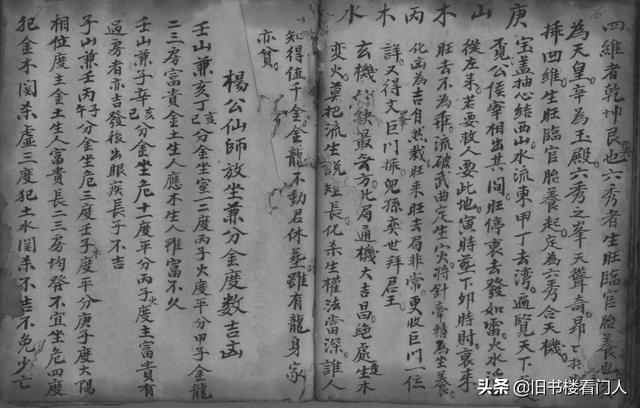 庚山木丙木水
四維者乾坤艮巽也六秀者生旺臨官胎養也
為天皇辛為玉殿六秀之峯天聳奇昂
揷四維生旺臨官胎養起是為六秀合天機
寶盖抽心結西山水流東甲丁去湾遍覧天下
覔公侯宰相出其间旺停裏去發如雷火水
從左来若要救人要此地寅時葬下卯時財裏来
旺去不為乖流破武曲定生灾時針牽轉為坐養
化凶為吉自然栽旺来旺去局非常更收巨川一位
詳又得文巨川揷兒孫奕世拜君王
玄機八訣最為方此局通機大吉昌絕處生逢木
變火莫把流生説短長化杀生權法當深誰人
知得值千金金龍不動君休葬雖有龍身家
亦貧
楊公仙師放坐兼分金度數吉凶
壬山兼亥丁亥分金坐室一二度丙子火度平分甲子金龍
二三房富貴金土生人應木生人雖富不久
壬山兼子辛亥分金坐危十一度平分丙子火度主富貴有
過房者亦吉發後出眼疾長子不吉
子山兼壬丙子分金坐危三度壬子木度平分庚子度大陽
相位度主金土生人富貴長二三房均發不宜坐危四度
犯金木関杀虛三度犯土水関杀不吉不免少亡
头条 @旧书楼看门人